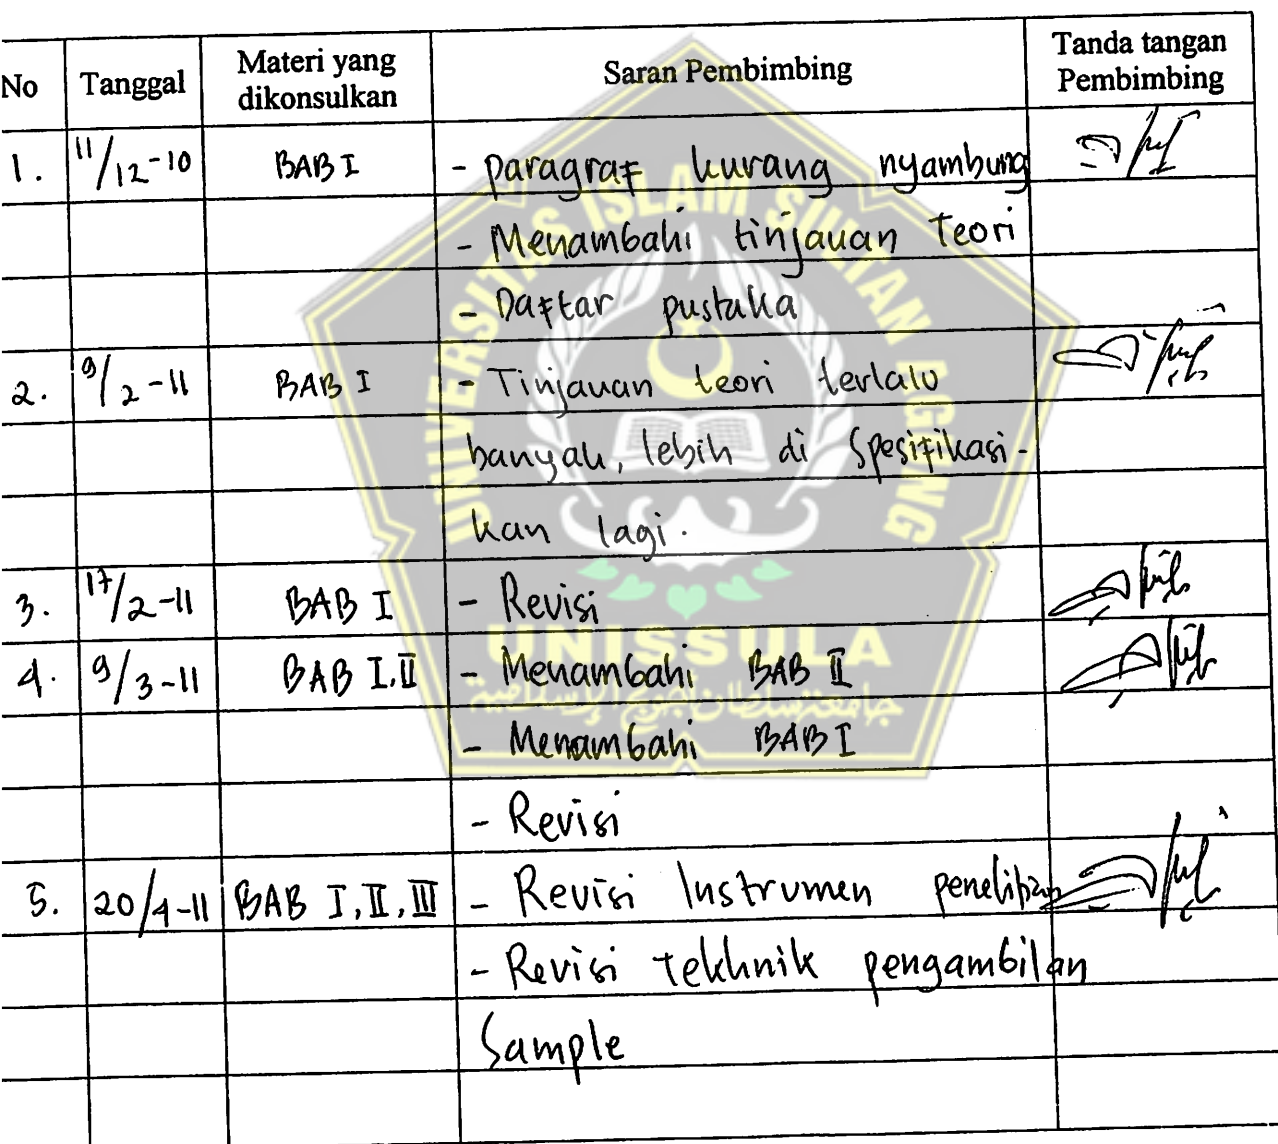 No Tanggal Materi yang dikonsulkan Saran Pembimbing Tanda tangan Pembimbing
1. 11/12-10 BAB I - paragraf kurang nyambung
- Menambahi tinjauan teori
- Daftar pustaka
2. 9/2-11 BAB I - Tinjauan teori terlalu
banyak, lebih di spesifikasi-
kan lagi.
3. 17/2-11 BAB I - Revisi
4. 9/3-11 BAB I.II - Menambahi BAB II
- Menambahi BAB I
- Revisi
5. 20/4-11 BAB I, II, III - Revisi Instrumen penelitian
- Revisi tekhnik pengambilan
Sample
UNIVERSITAS ISLAM SULTAN AGUNG
UNISSULA
جامعة سلطان أجونج الإسلامية